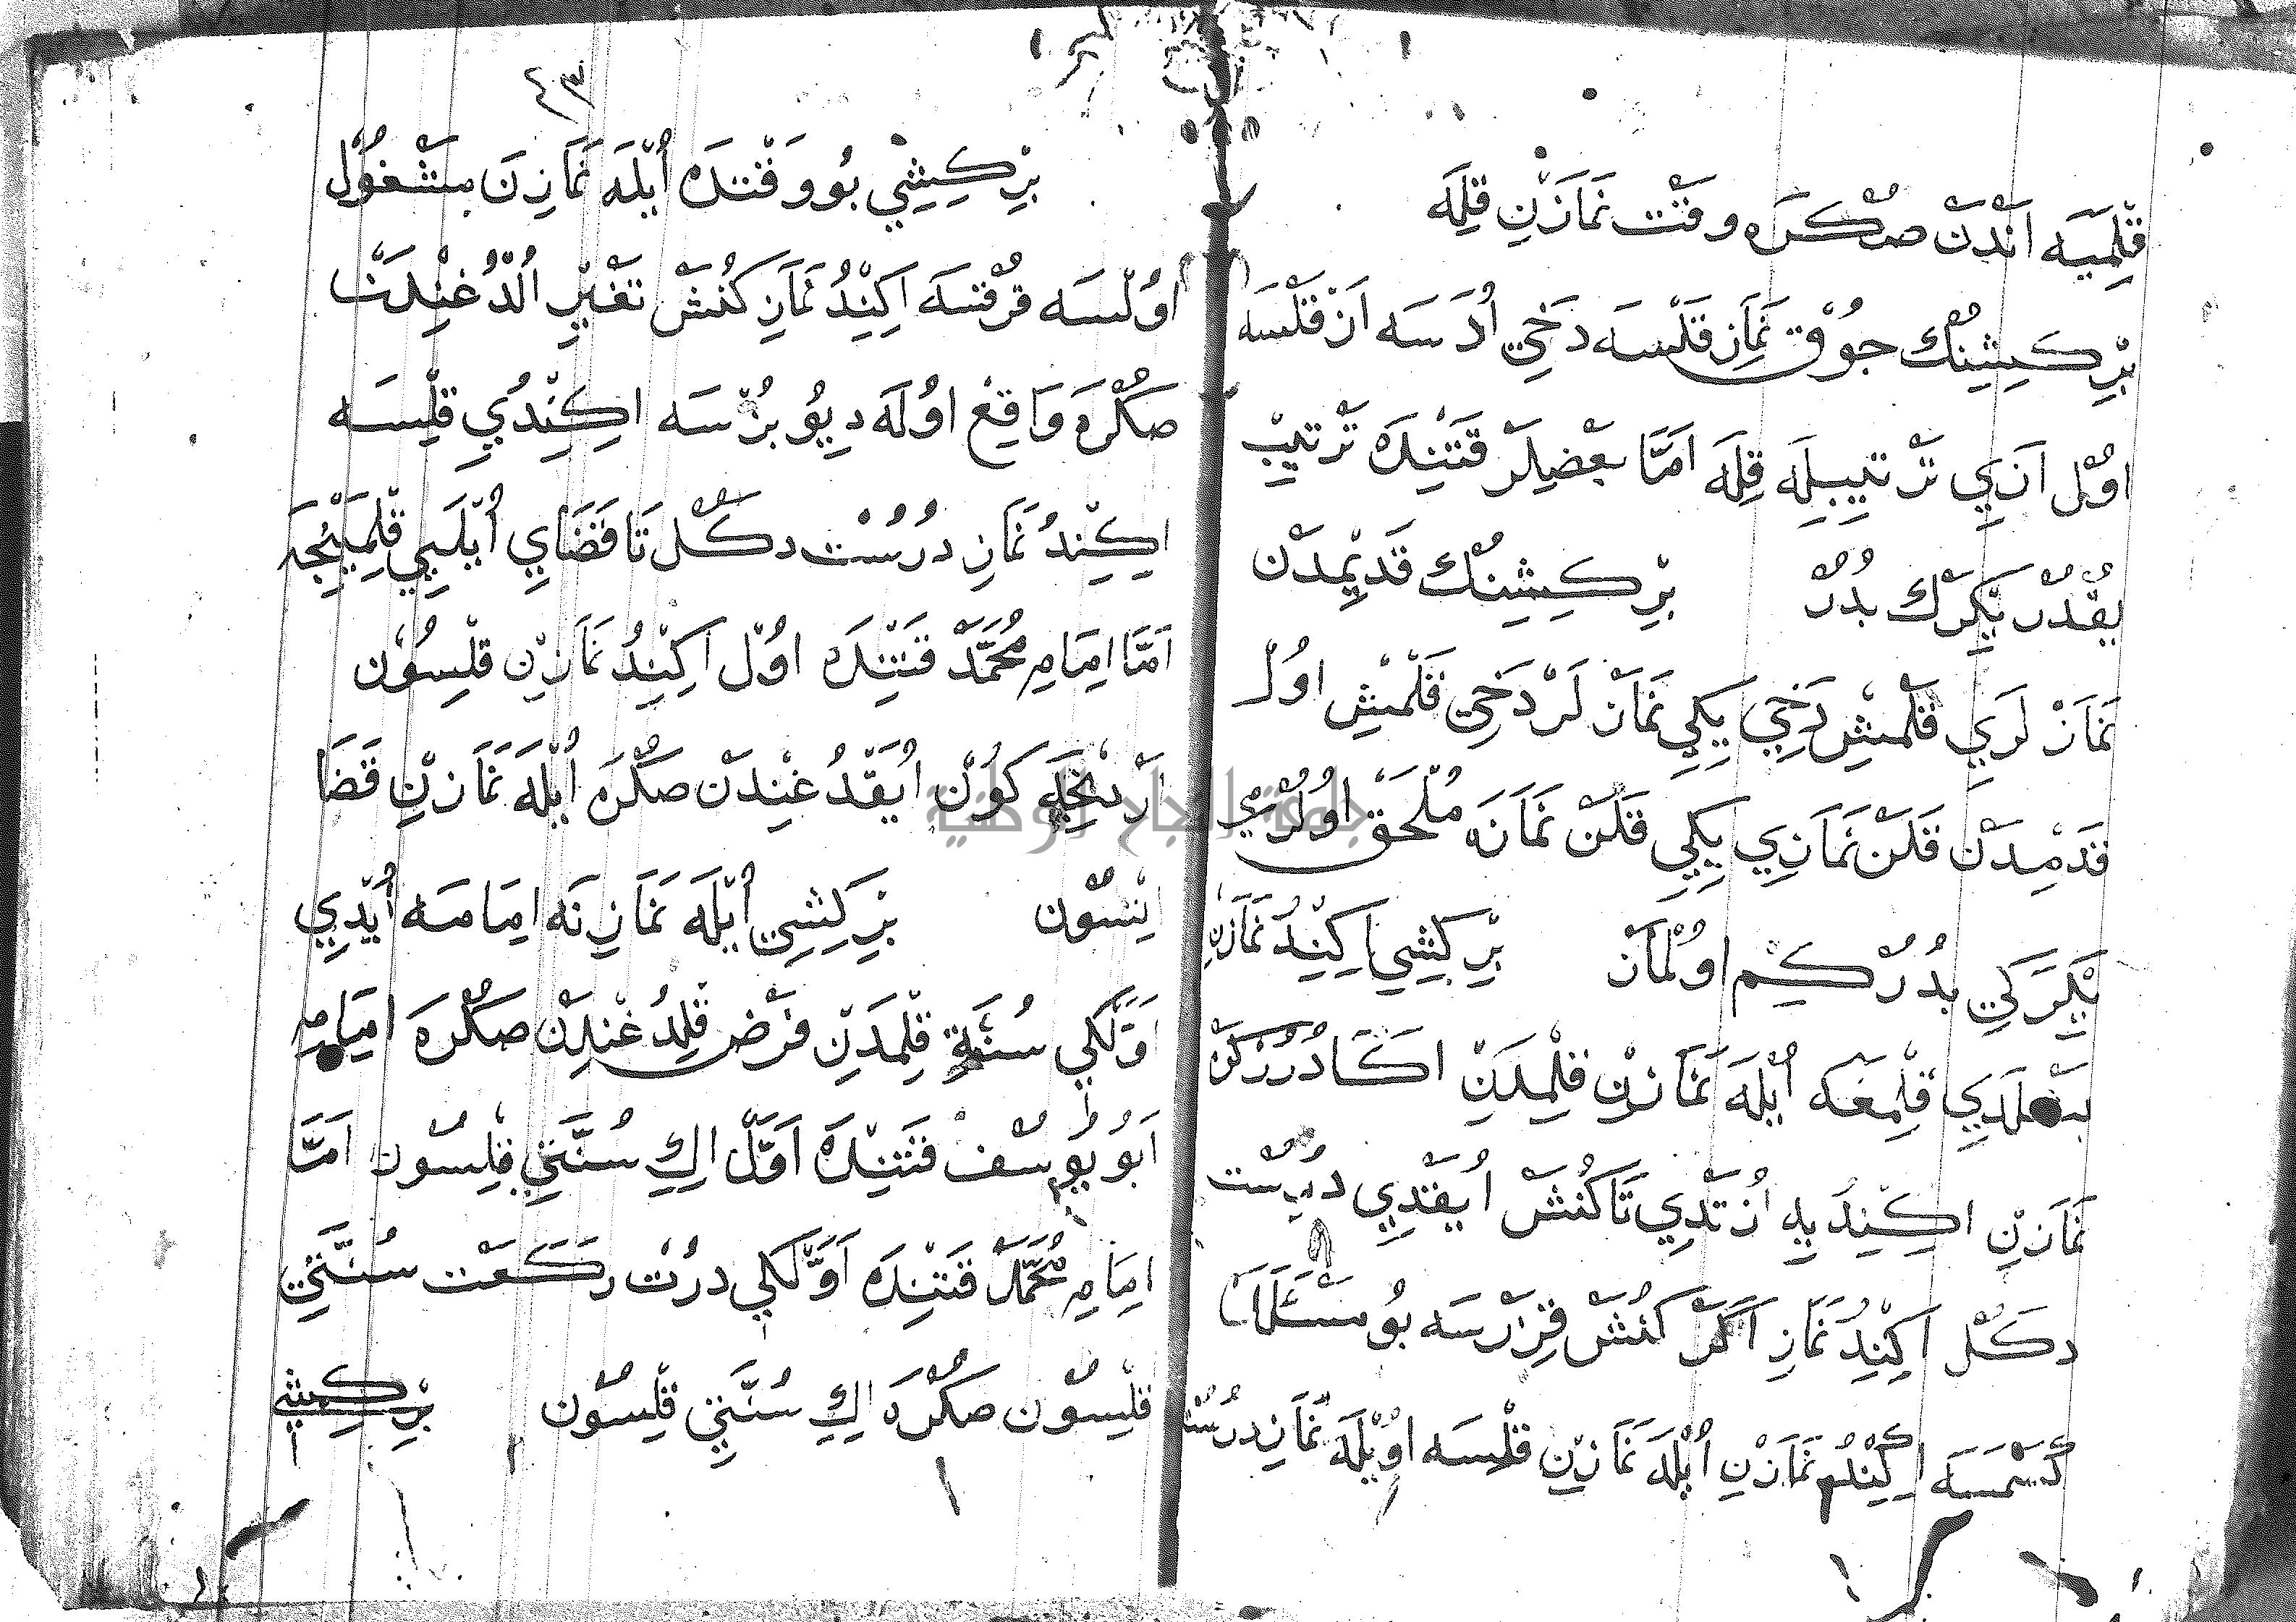 قِلْمَيَه اَنْدَنْ صُكْرَه وقتْ نَمَازْنِ قِلَه
بِرْ كِشِنُكْ چوُقْ نَمَازِ قَلْسَه دَخِي اُدَسَه اَنْ قَلْسَه
اوُلْ اَنِي تَرْتِيبِلَه قِلَه اَمَّا بَعْضِيلَرْ قَتِنْدَه تَرْتِيبْ
يُقْدُرْ يَكْرَكْ بُدُرْ بِرْ كِشِنُكْ قَدِيمدَنْ
نَمَازْ لَرِي قَلْمِشْ دَخِي يَكِي نَمَازْ لَرْ دَخِي قَلْمِشْ اوُلْ
قَدِمْدَنْ قَلَنْ نَمَازِي يَكِي قَلَنْ نَمَازَه مُلْحَقْ اوُلُرْمِي
يَكْرَكِي بُدُرْ كِمْ اوُلْمَازْ بِرْ كِشِي اِكِنْدُ نَمَازِنْ
بَشْلَدِي قِلْمَغَه اُيْلَه نَمَازِنْ قِلْمَدِنْ اَكَا دُرُرْكَنْ
نَمَازِنْ اِكِنْدُيِه اُزَتْدِي تَا كُنَشْ اُيَقْدِي دُرُسْت
دَكُلْ اِكِنْدُ نَمَازِ اَكَرْ كُنَشْ قِزَارْسَه بُو مَسْئَلَدَا
كَسْمَسَه اِكِنْدُ نَمَازْنِ اُيْلَه نَمَازِنْ قِلْسَه اوُيْلَه نَمَازِ دُرُسْت
٤٣
بِرْ كِشِي بُو وَقْتدَه اُيْلَه نَمَازِنَ مَشْغُولْ
اوُلْسَه قُرْقسَه اِكِنْدُ نَمَازِ كُنَشْ تَغْيِيرْ اُلْدُغِنْدَنْ
صُكْرَه وَاقِعْ اوُلَه دِيُو بُزْسَه اِكِنْدُيِ قِلْسَه
اِكِنْدُ نَمَازِ دُرُسْت دَكُلْ تَا قَضَايِ اُيْلَيِي قِلْمَيِنْجَه
اَمَّا اِمَامِ مُحَمَّدْ قَتِنْدَه اوُلْ اِكِنْدُ نَمَازِنْ قِلْسُونْ
اَرْتنِجَه كوُنْ اُيَقْدُغِنْدَنْ صُكْرَه اُيْلَه نَمَازِنْ قَضَا
اِتْسُونْ بِرْ كِشِي اُيْلَه نَمَازِنَه اِمَامَه اُيْدِي
اَوَّلَكِي سُنَّتِ قِلْمَدِنْ فَرْضْ قِلْدُغِنْدَنْ صُكْرَه اِمَامِ
اَبُو يُوسُفْ قَتِنْدَه اَوَّلْ اِكِ سُنَّتِي قِلْسُونْ اَمَّا
اِمَامِ مُحَمَّدْ قَتِنْدَه اَوَّلَكِي دُرْتْ رَكَعَتْ سُنَّتِي
قِلْسُونْ صُكْرَه اِكِ سُنَّتِي قِلْسُونْ بِرْ كِشِي
جامعة النجاح الوطنية